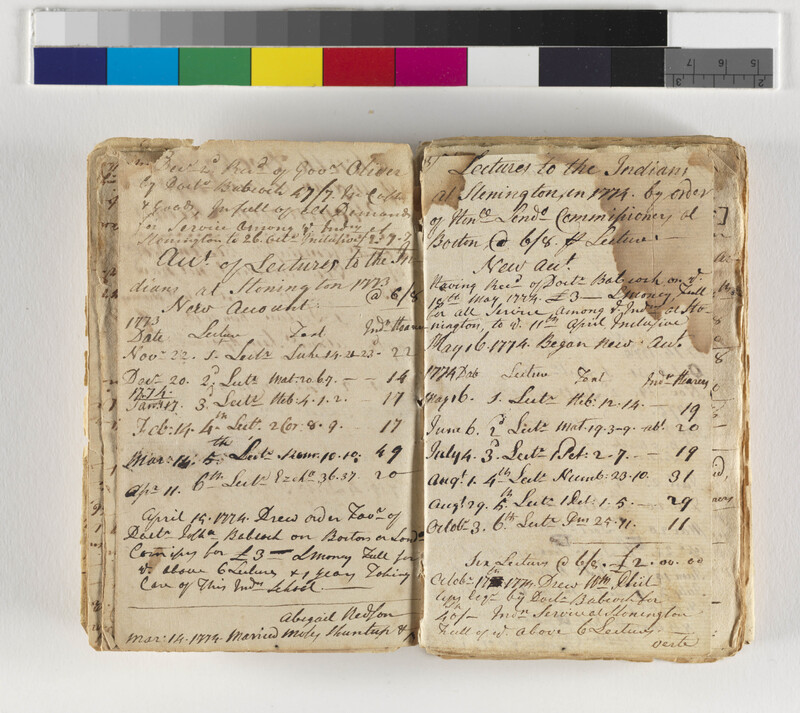 Recd of Govr Oliver
by Doctr Babcock £7/7. In Cash
& Goods, In full of all Demands
for Service Among ye Indns at
Stonington to 26. Octr Inclusive £7-7-
Aut. of Lectures to the In
dians at Stonington 1773
New Account. @ 6/8
1773
Date Lecture Text Indns Hearers
Novr 22. 1. Lectr Luke 14. 21-23d- 22
Decr 20. 2d Lectr Mat: 20. 6.7. - - 14
1774.
Janr 17. 3. Lectr Heb: 4. 1. 2. - 17
Feb: 14. 4th Lectr. 2 Cor: 8. 9. - 17
Mar: 14. 5th Lectr Num: 10. 10. 49
Apr. 11. 6th Lectr Ezeka 36. 37. 20
April 15. 1774. Drew order Favr of
Doctr Joshua Babcock on Boston or London
Comissrs for £3 - L Money Full for
ye above 6 Lectures & 1 year Taking
Care of This Indn School.
Abigail Nedson
Mar: 14. 1774. Married Moses Shuntup &
Lectures to the Indians
at Stonington, in 1774. by order
of Honle Londo Commissioners at
Boston, @ 6/8. pr Lecture. -
New Aut.
Having Recd of Doctr Babcock on ye
May. 1774. £3 - L money, Full
for all Service Among ye Indns at Sto
nington, to ye 11th April Inclusive
May 16. 1774. Began New Aut.
1774 Date Lecture Text Indns Hearers
May 16. 1. Lectr Heb: 12. 14. - 19
June 6. 2d Lectr Mat. 19. 3-9. 20
July 4. 3d Lectr 1 Pet: 2. 7. - - 19
Augt 1. 4th Lectr Numb: 23. 10. 31
Augt 29. 5th Lectr 1 Pet: 1. 5. - - 29
Octobr 3. 6th Lectr Gen 25. 11. 11
Six Lectures @ 6/8. £2. 00. 00
Octobr 17th 1774 Drew on Wm Phil
lips Esqr by Doctr Babcock for
40/- Indn Service at Stonington
Full of ye above 6 Lectures
verte